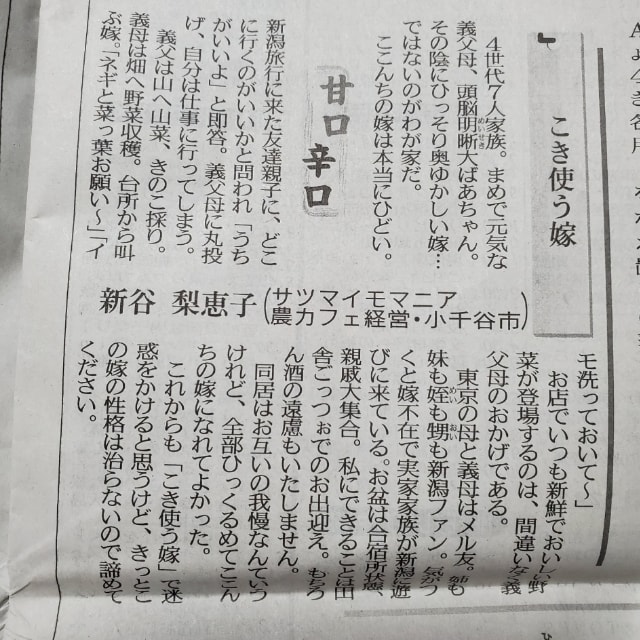 こき使う嫁
甘口辛口
４世代７人家族。まめで元気な
義父母、頭脳明晰大ばあちゃん。
その陰にひっそり奥ゆかしい嫁…
ではないのがわが家だ。
ここんちの嫁は本当にひどい。
新潟旅行に来た友達親子に、どこ
に行くのがいいかと問われ「うち
がいいよ」と即答。義父母に丸投
げ、自分は仕事に行ってしまう。
義父は山へ山菜、きのこ採り。
義母は畑へ野菜収穫。台所から叫
ぶ嫁。「ネギと菜っ葉お願い～」「イ
新谷 梨恵子（サツマイモマニア
農カフェ経営・小千谷市）
モ洗っておいて～」
お店でいつも新鮮でおいしい野
菜が登場するのは、間違いなく義
父母のおかげである。
東京の母と義母はメル友。姉も
妹も姪も甥も新潟ファン。気がつ
くと嫁不在で実家家族が新潟に遊
びに来ている。お盆は合宿所状態、
親戚大集合。私にできることは田
舎ごっつぉでのお出迎え。もちろ
ん酒の遠慮もいたしません。
同居はお互いの我慢なんていう
けれど、全部ひっくるめてこんな
ちの嫁になれてよかった。
これからも「こき使う嫁」で迷
惑をかけると思うけど、きっとこ
の嫁の性格は治らないので諦めて
ください。